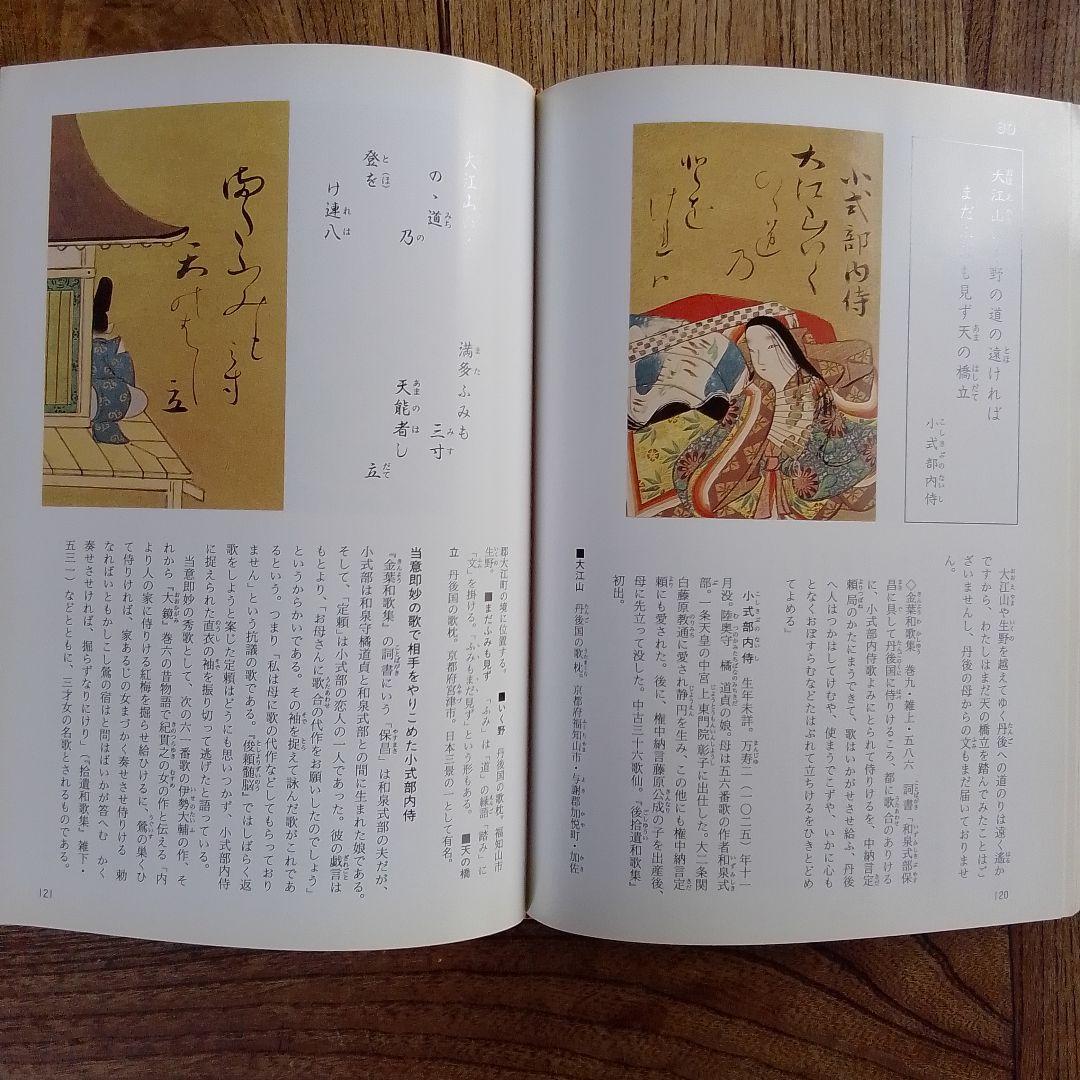 60
大江山 野の道の遠ければ
まだ も見ず天の橋立
小式部内侍
小式部内侍
大江山いく
のゝ道
乃
登を
け連八
大江山や生野を越えてゆく丹後への道のりは遠く遙か
ですから、わたしはまだ天の橋立を踏んでみたことはご
ざいませんし、丹後の母からの文もまだ届いておりませ
ん。
◇金葉和歌集 巻九・雑上・五八六 詞書「和泉式部保
昌に具して丹後国に侍りけるころ、都に歌合のありける
に、小式部内侍歌よみにとられて侍りけるを、中納言定
頼局のかたにまうできて、歌はいかがせさせ給ふ、丹後
へ人はつかはしてけむや、使まうでこずや、いかに心も
となくおぼすらむなどたはぶれて立ちけるをひきとどめ
てよめる」
小式部内侍 生年未詳。万寿二(一〇二五)年十一
月没。陸奥守 橘 道貞の娘。母は五六番歌の作者和泉式
部。一条天皇の中宮 上東門院彰子に出仕した。大二条関
白藤原教通に愛され静円を生み、この他にも権中納言定
頼にも愛された。後に、権中納言藤原公成の子を出産後、
母に先立って没した。中古三十六歌仙。『後拾遺和歌集』
初出。
■大江山 丹後国の歌枕。京都府福知山市・与謝郡加悦町・加佐
120
大江山
のゝ道
乃
登を
け連八
満多ふみも
三寸
天能者し
立
満多ふみも
三寸
天能者し
立
郡大江町の境に位置する。 ■いく野 丹後国の歌枕。福知山市
生野。 ■まだふみも見ず 「ふみ」は「道」の縁語「踏み」に
「文」を掛ける。「ふみもまだ見ず」という形もある。 ■天の橋
立 丹後国の歌枕。京都府宮津市。日本三景の一として有名。
当意即妙の歌で相手をやりこめた小式部内侍
『金葉和歌集』の詞書にいう「保昌」は和泉式部の夫だが、
小式部は和泉守橘道貞と和泉式部との間に生まれた娘である。
そして、「定頼」は小式部の恋人の一人であった。彼の戯言は
もとより、「お母さんに歌合の代作をお願いしたのでしょう」
というからかいである。その袖を捉えて詠んだ歌がこれであ
るという。つまり「私は母に歌の代作などしてもらっており
ません」という抗議の歌である。『俊頼髄脳』ではしばらく返
歌をしようと案じた定頼はどうにも思いつかず、小式部内侍
に捉えられた直衣の袖を振り切って逃げたと語っている。
当意即妙の秀歌として、次の六一番歌の伊勢大輔の作、そ
れから『大鏡』巻六の昔物語で紀貫之の女の作と伝える「内
より人の家に侍りける紅梅を掘らせ給ひけるに、鶯の巣くひ
て侍りければ、家あるじの女まづかく奏せさせ侍りける 勅
なればいともかしこし鶯の宿はと問はばいかが答へむ かく
奏せさせければ、掘らずなりにけり」(『拾遺和歌集』雑下・
五三一)などとともに、三才女の名歌とされるものである。
121